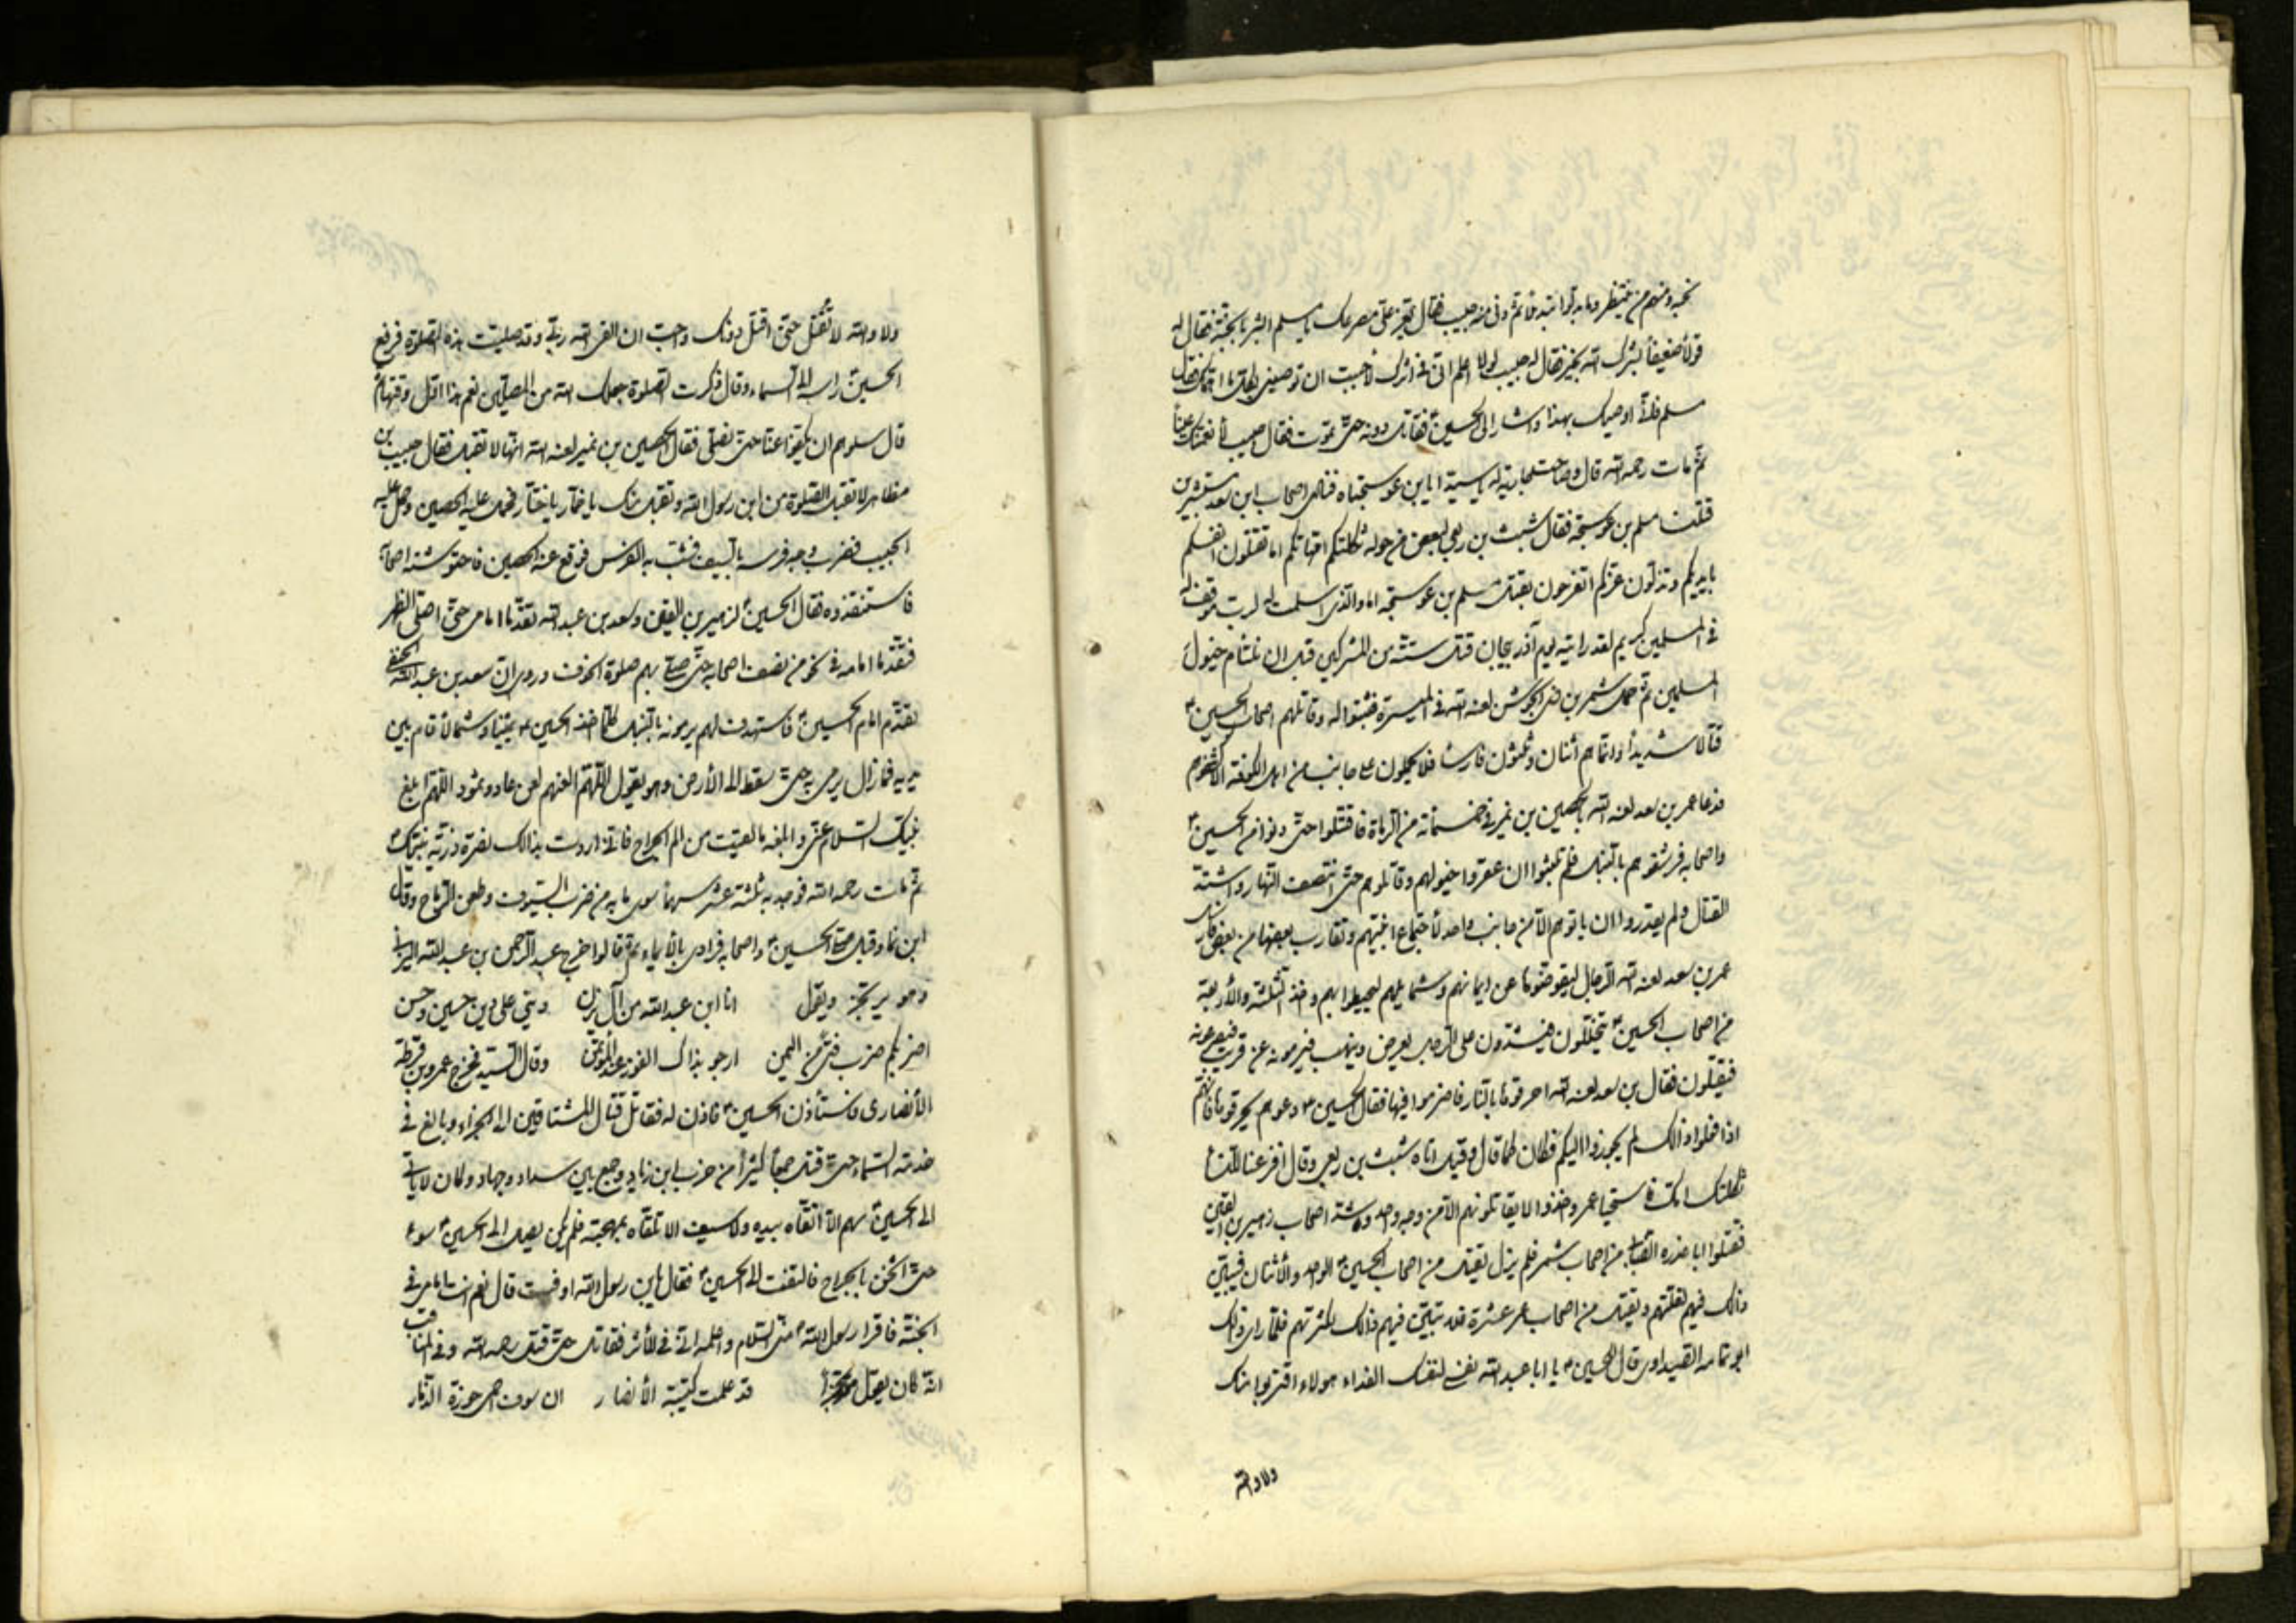 نحبه ومنهم من ينتظر وما بدلوا تبديلا ثم دنى منه حبيب فقال يعز على مصرعك يا مسلم ابشر بالجنة فقال له
قولا ضعيفا بشرك الله بخير فقال له حبيب لولا اعلم انى فى اثرك لأحببت ان توصينى بكل ما اهمك فقال
مسلم فانى اوصيك بهذا واشار الى الحسين ع فقاتل دونه حتى تموت فقال حبيب لأنعمنك عينا
ثم مات رحمه الله قال وصاحت جارية له يا سيداه يابن عوسجتاه فنادى اصحاب ابن سعد مستبشرين
قتلنا مسلم بن عوسجة فقال شبث بن ربعى لبعض من حوله ثكلتكم امهاتكم اما تقتلون انفسكم
بايديكم وتذلون عزكم اتفرحون بقتل مسلم بن عوسجة اما والذى اسلمت له لرب موقف له
فى المسلمين كريم لقد رايته يوم آذربيجان قتل ستة من المشركين قبل ان تلتام خيول
المسلمين ثم حمل شمر بن ذى الجوشن لعنه الله فى الميسرة فثبتوا له وقاتلهم اصحاب الحسين ع
قتالا شديدا وانما هم اثنان وثلثون فارسا فلا يحملون على جانب من اهل الكوفة الا كشفوهم
فدعا عمر بن سعد لعنه الله بالحصين بن نمير فى خمسمائة من الرماة فاقتتلوا حتى دنوا من الحسين ع
واصحابه فرشقوهم بالنبل فلم يلبثوا ان عقروا خيولهم وقاتلوهم حتى انتصف النهار واشتد
القتال ولم يقدروا ان ياتوهم الا من جانب واحد لأجتماع اخبيتهم وتقارب بعضها من بعض فارسل
عمر بن سعد لعنه الله الرجال ليقوضوها عن ايمانهم وشمايلهم ليحيطوا بهم واخذ الثلثة والأربعة
من اصحاب الحسين ع يتخللون فيشدون على الرجل يعرض وينهب فيرمونه عن قريب فيصرعونه
فيقتلون فقال بن سعد لعنه الله احرقوها بالنار فاضرموا فيها فقال الحسين ع دعوهم يحرقوها فانهم
اذا فعلوا ذالك لم يجوزوا اليكم فكان كما قال وقيل اتاه شبث بن ربعى وقال افزعنا النسا
ثكلتك امك فاستحيا عمر واخذوا لا يقاتلونهم الا من وجه واحد وشد اصحاب زهير بن القين
فقتلوا ابا عذره الضبابى من اصحاب شمر فلم يزل يقتل من اصحاب الحسين ع الواحد والأثنان فيتبين
ذالك فيهم لقلتهم ويقتل من اصحاب عمر عشرة فلا يتبين فيهم ذالك لكثرتهم فلما راى ذالك
ابو ثمامه الصيداوى قال للحسين ع يا ابا عبد الله نفسى لنفسك الفداء هولاء اقتربوا منك
ولا والله
ولا والله لا تقتل حتى اقتل دونك واحب ان القى الله ربى وقد صليت هذه الصلوة فرفع
الحسين ع راسه الى السماء وقال ذكرت الصلوة جعلك الله من المصلين نعم هذا اول وقتها ثم
قال سلوهم ان يكفوا عنا حتى نصلى فقال الحصين بن نمير لعنه الله انها لا تقبل فقال حبيب بن
مظاهر لا تقبل الصلوة من ابن رسول الله وتقبل منك يا خمار يا ختار فحمل عليه الحصين وحمل عليه
الحبيب فضرب وجه فرسه بالسيف فشب به الفرس فوقع عنه الحصين فاحتوشته اصحابه
فاستنقذوه فقال الحسين ع لزهير بن القين وسعد بن عبد الله تقدما امامى حتى اصلى الظهر
فتقدما امامه فى نحو من نصف اصحابه حتى صلى بهم صلوة الخوف وروى ان سعد بن عبد الله الحنفى
تقدم امام الحسين ع فاستهدف لهم يرمونه بالنبل كلما اخذ الحسين ع يمينا وشمالا قام بين
يديه فمازال يرمى به حتى سقط الى الأرض وهو يقول اللهم العنهم لعن عاد وثمود اللهم ابلغ
نبيك السلام عنى وابلغه ما لقيت من الم الجراح فانى اردت بذالك نصرة ذرية نبيك ع
ثم مات رحمه الله فوجد به ثلثة عشر سهما سوى ما به من ضرب السيوف وطعن الرماح وقال
ابن نما وقيل صلى الحسين ع واصحابه فرادى بالأيماء ثم قالوا خرج عبد الرحمن بن عبد الله اليزنى
وهو يرتجز ويقول انا ابن عبد الله من آل يزن دينى على دين حسين وحسن
اضربكم ضرب فتى من اليمن ارجو بذاك الفوز عند المؤتمن وقال السيد فخرج عمرو بن قرظة
الأنصارى فاستأذن الحسين ع فاذن له فقاتل قتال المشتاقين الى الجزاء وبالغ فى
خدمة السماء حتى قتل جمعا كثيرا من حزب ابن زياد وجمع بين سداد وجهاد وكان لا ياتى
الى الحسين ع سهم الا اتقاه بيده ولا سيف الا تلقاه بمهجته فلم يكن يصل الى الحسين ع سوء
حتى اثخن بالجراح فالتفت الى الحسين ع فقال يابن رسول الله اوفيت قال نعم انت امامى فى
الجنة فاقرا رسول الله ص منى السلام واعلمه انى فى الأثر فقاتل حتى قتل رحمه الله وفى المناقب
انه كان يقول قد علمت كتيبة الأنصار ان سوف احمى حوزة الذمار